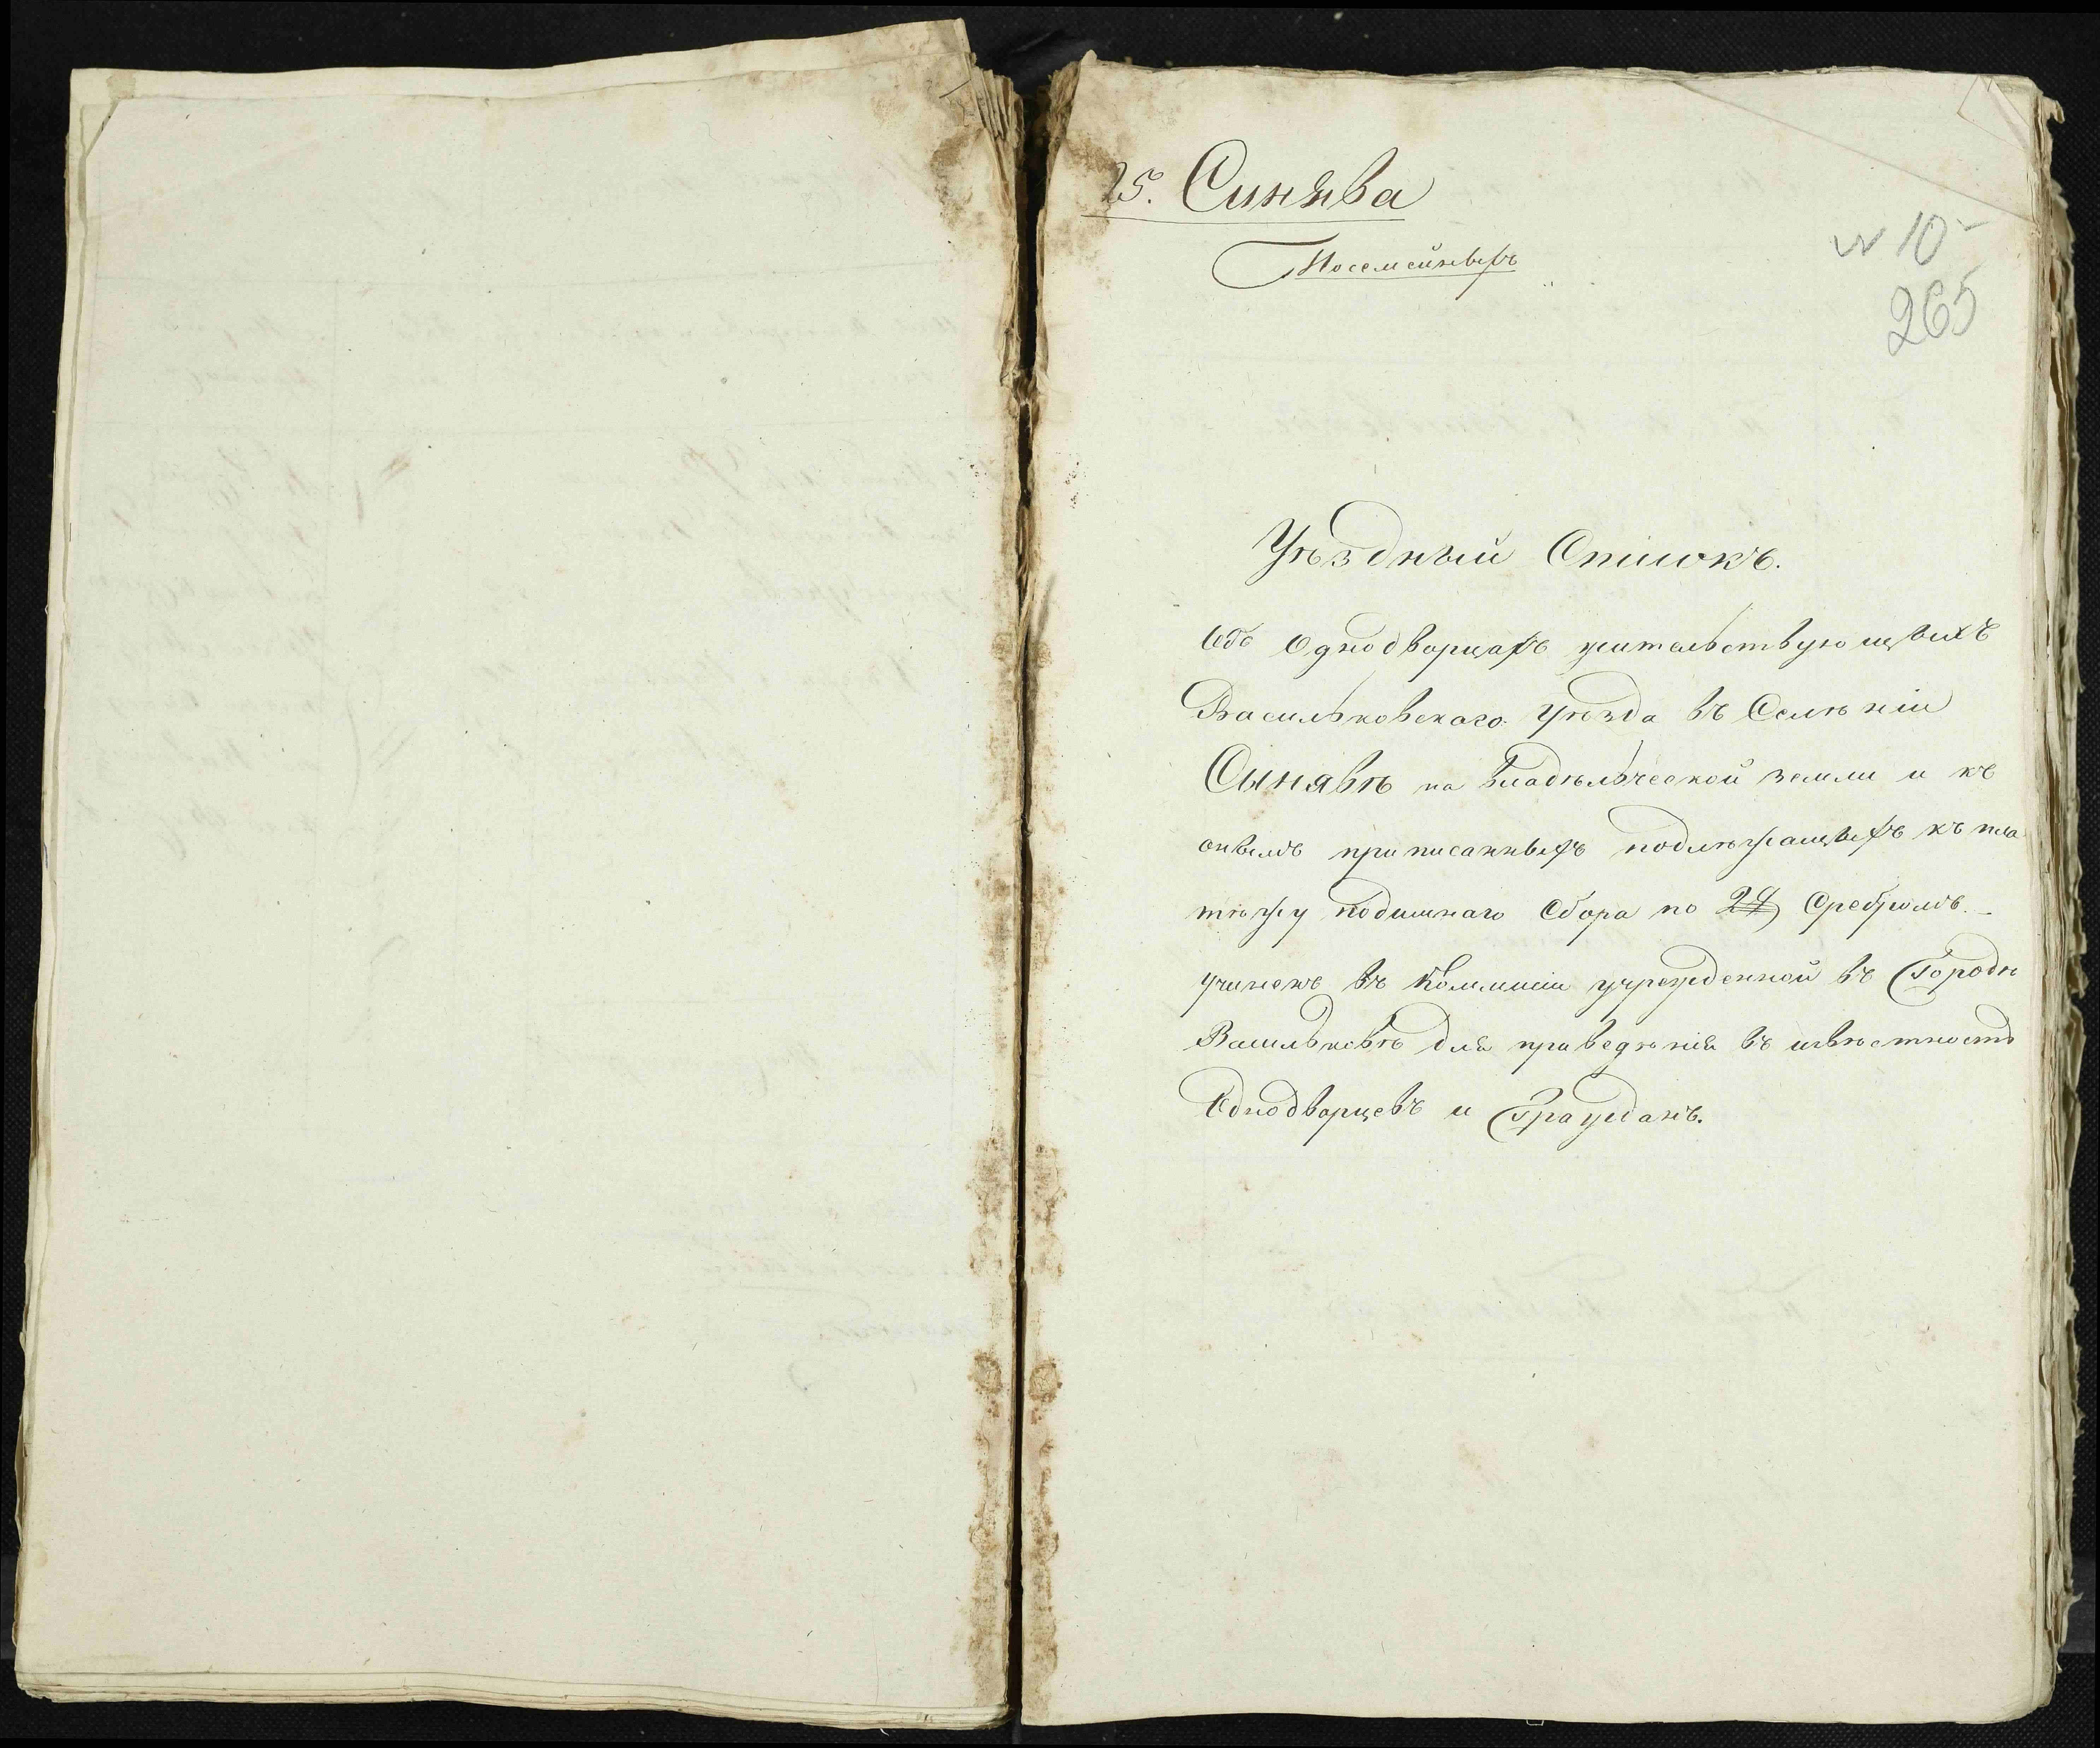 25. Синява
Посемейныхъ
№ 10
265
Уѣздный Списокъ.
Объ Однодворцахъ жительствующыихъ
Васильковскаго Уѣзда въ Селѣніи
Сынявѣ на Владѣльческой земли и къ
онымъ приписанныхъ подлѣжащыхъ къ пла
тѣжу подымнаго Сбора по 24 Сребромъ.
учинекъ въ Коммисіи учрежденной въ Городѣ
Васильковѣ для приведѣнія въ извѣстность
Однодворцевъ и Гражданъ.